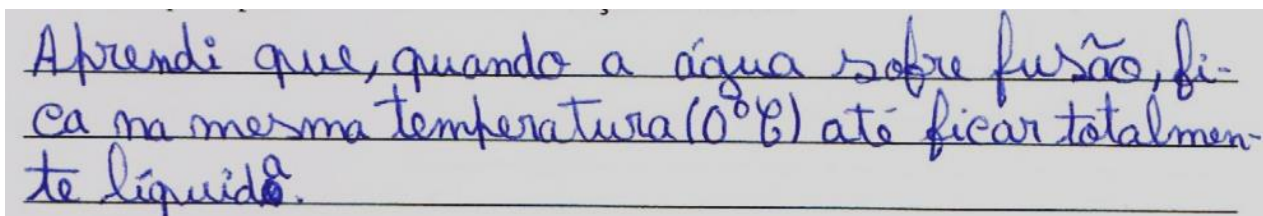 Aprendi que, quando a água sofre fusão, fi-
ca na mesma temperatura (0°C) até ficar totalmen-
te líquida.